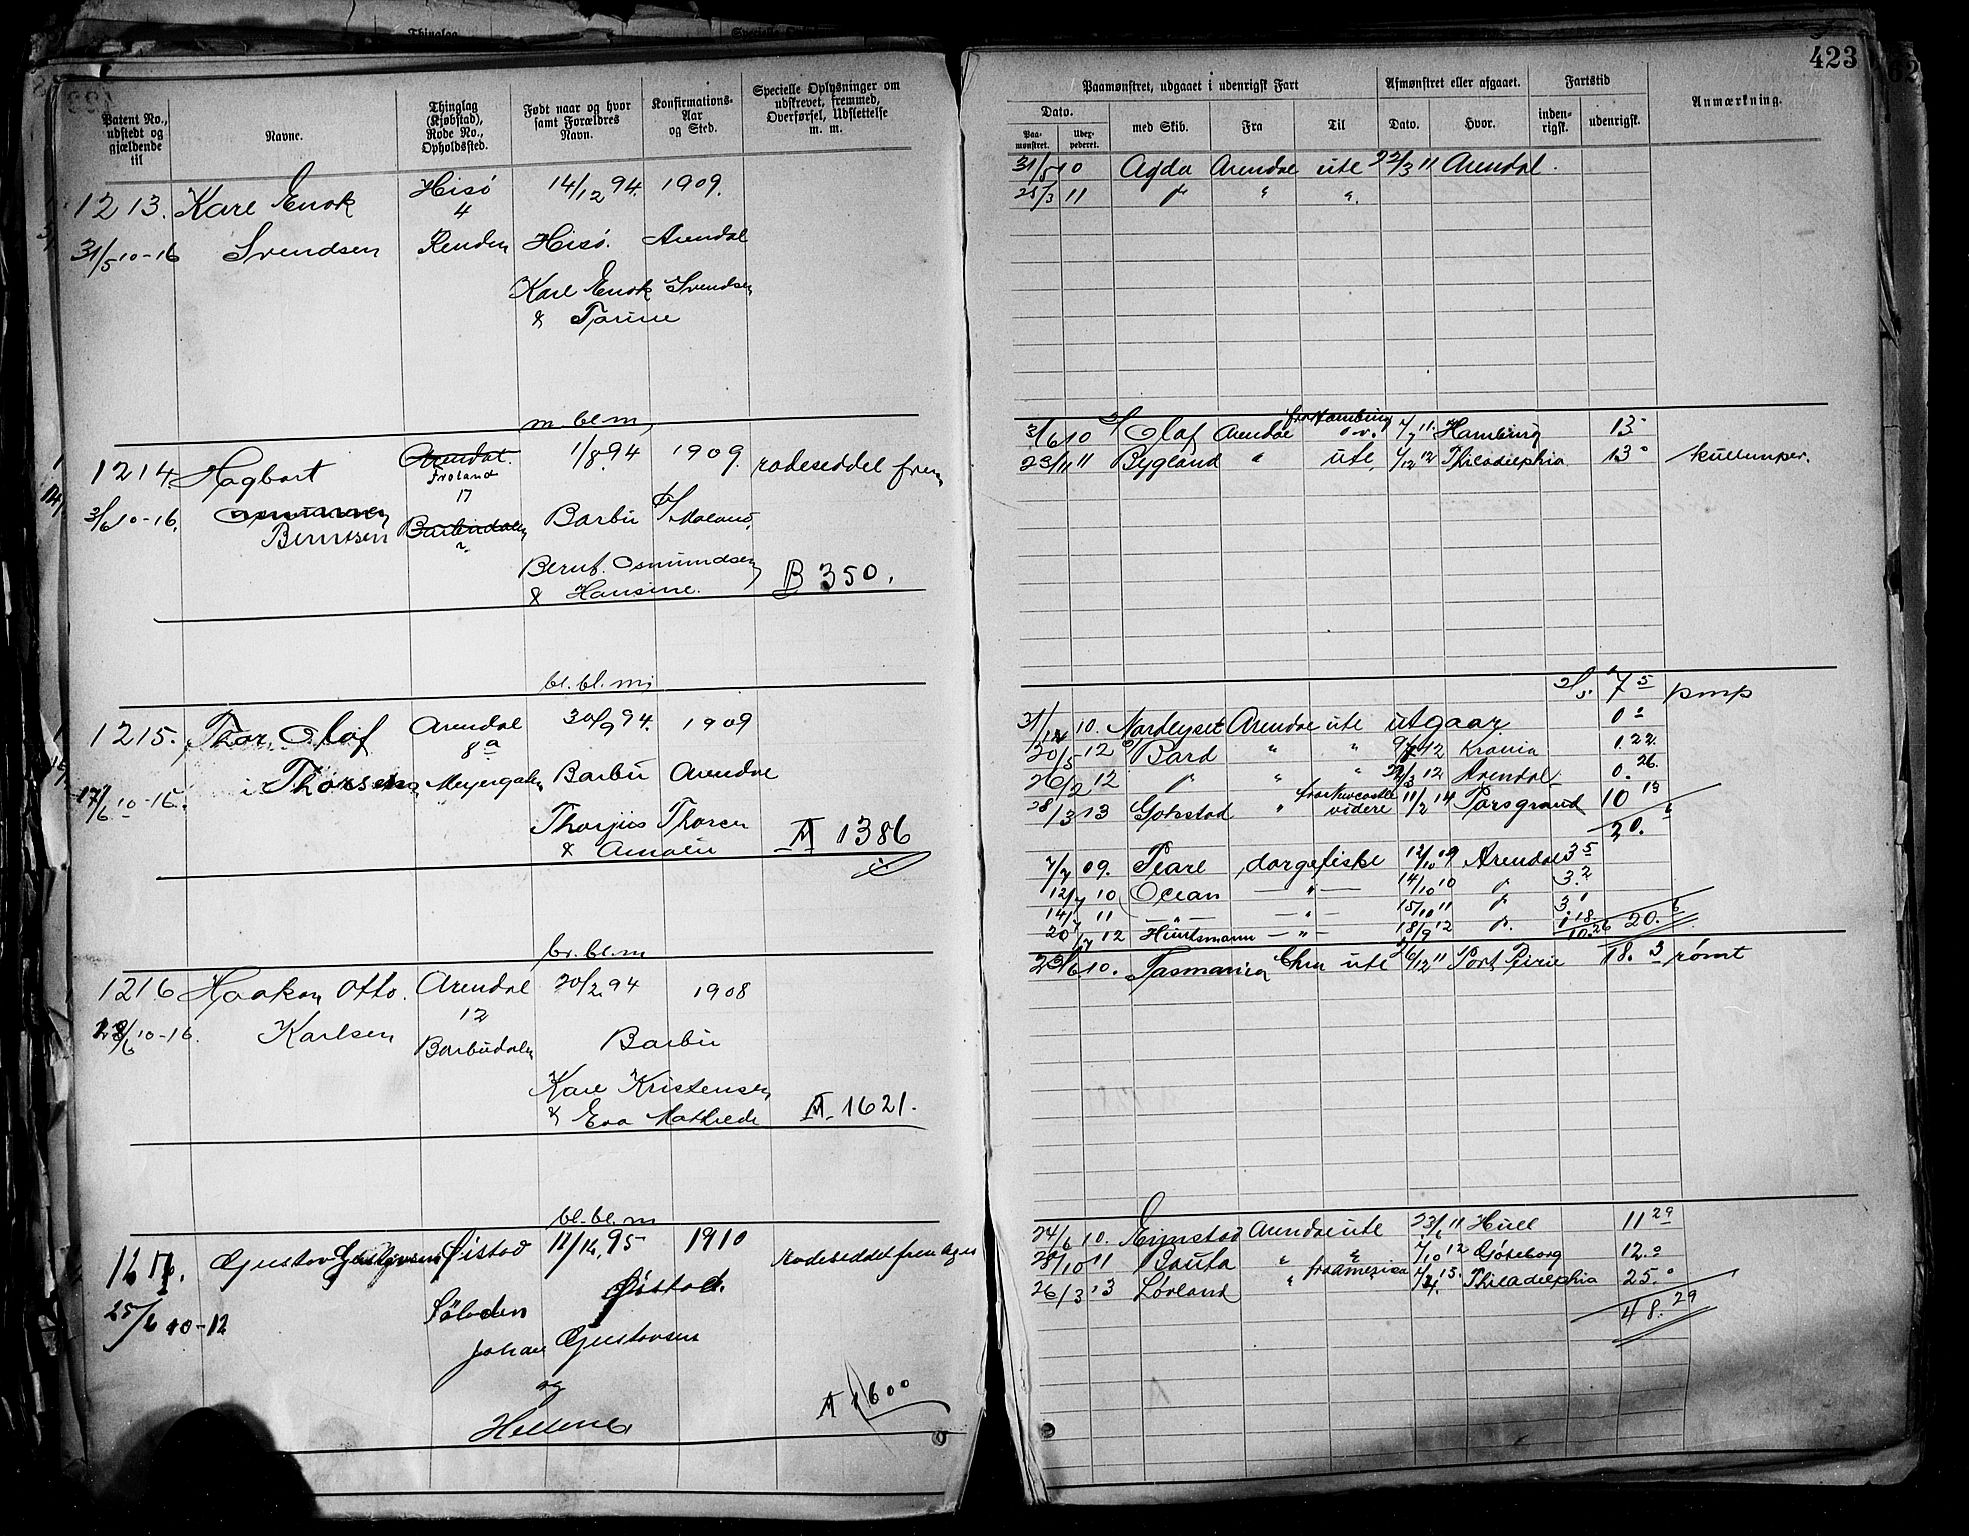 Thinglag
423
62
Patent No., udstedt og gjældende til
Navne.
Thinglag (Kjøbstad), Rode No., Opholdssted.
Født naar og hvor samt Forældres Navn.
Konfirmations-Aar og Sted.
Specielle Oplysninger om udskrevet, fremmed, Overførsel, Udslettelse m. m.
Paamønstret, udgaaet i udenrigsk Fart
Dato.
Paa-mønstret.
med Skib.
Fra
Til
Afmønstret eller afgaaet.
Dato.
Hvor.
Fartstid
inden-rigsk.
udenrigsk.
Anmærkning.
1213. Karl Enok Hisø 14/12 94. 1909.
4
31/5 10-16 Svendsen Renden Hisø. Arendal
Karl Enok Svendsen
& Torine
31/5 10 Agda Arendal ute 22/3 11 Arendal.
25/3 11 " " "
m. bl. m,
1214. Hagbart Arendal. 1/8 94 1909. rodeseddel frem
Froland
17
3/6 10-16. Osmundsen Barbudalen Barbu Ø/Moland,
Berntsen
Bernt. Osmundsen
& Hansine. B 350.
3/6 10 Olaf Arendal fra Hamburg 4/7 11 Hamburg 13
23/11 11 Bygland " ute, 4/12 12 Philadelphia 13 0 kullemper.
bl. bl. m;
1215. Thor. Olaf Arendal 30/9 94. 1909
8a
17/6 10-16. Thorsen Meyergaten Barbu Arendal
Thorjus Thorsen
& Amalie A 1386
7 5 pmp
31/12 10. Nordlyset Arendal ute utgaar 0
20/5 12 Bard " " Krania 1.22
26/2 12 " " " 12 Arendal, 0. 26.
28/3 13 Gokstad " fra Newcastle videre 11/2 14 Porsgrund 10 13
20. 6
7/7 09. Pearl dorgefiske 12/10 09 Arendal 3 5
12/7 10 Ocean — " — 14/10 10 " 3. 2
14/7 11 — " — — " — 15/10 11 " 3. 1
20/7 12 Huntsmann — " — 18/9 12 ". 1 18
10. 26 20. 6
br. bl. m
1216 Haakon Otto. Arendal 20/2 94 1908
12
23/6 10-16. Karlsen Barbudalen Barbu
Karl Kristensen
& Eva Mathilde A 1621.
23/6 10. Tasmania Chra ute 26/12 11 Port Pirie 18. 3 rømt
bl. bl. m
1217. Gustav Gustavsen Øistad 11/12, 95 1910 Rodeseddel frem
25/6 10-12 Sølvden Øistad.
Johan Gustavsen
og
Hellene A 1600
24/6 10. Ejnstad Arendal ute 23/6 11 Hull 11 29
28/10 11 Bauta " " 7/10 12 Gøteborg 12. 0
26/3 13 Lørland " fra Amerika 15. Philadelphia 25. 0
48. 29